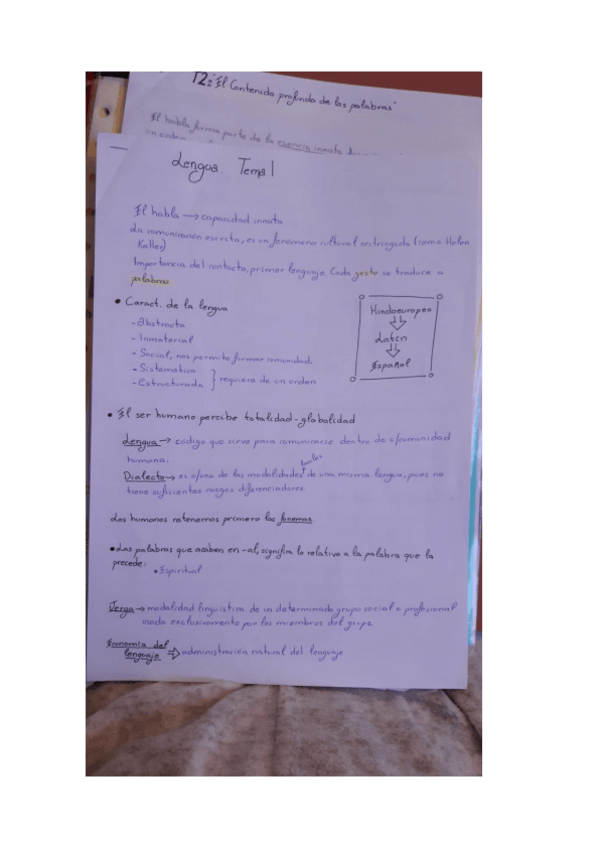 T2: "El Contenido profundo de las palabras"
El habla forma parte de la esencia innata
Lengua. Tema 1
El habla → capacidad innata
La comunicación escrita, es un fenómeno cultural restringido (como Helen
Keller)
Importancia del contacto, primer lenguaje. Cada gesto se traduce a
palabras
• Caract. de la lengua
- Abstracta
- Inmaterial
- Social, nos permite formar comunidad.
- Sistemática
- Estructurada } requiere de un orden
Hindoeuropeo
⇓
Latín
⇓
Español
• El ser humano percibe totalidad - globalidad
Lengua → código que sirve para comunicarse dentro de c/comunidad
humana.
Dialecto → es c/una de las modalidades de una misma lengua, pues no
tiene suficientes rasgos diferenciadores.
Los humanos retenemos primero los fonemas.
• Las palabras que acaban en -al, significa lo relativo a la palabra que la
precede:
• Espiritual
Jerga → modalidad lingüística de un determinado grupo social o profesional
usada exclusivamente por los miembros del grupo.
Economía del
lenguaje ⇒ administración natural del lenguaje